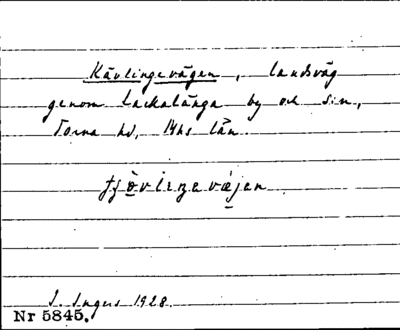 Kävlingevägen, landsväg
genom Lackalänga by och s:n,
Torna hd, Mhs län.
I. Ingers 1928.
Nr 5845.